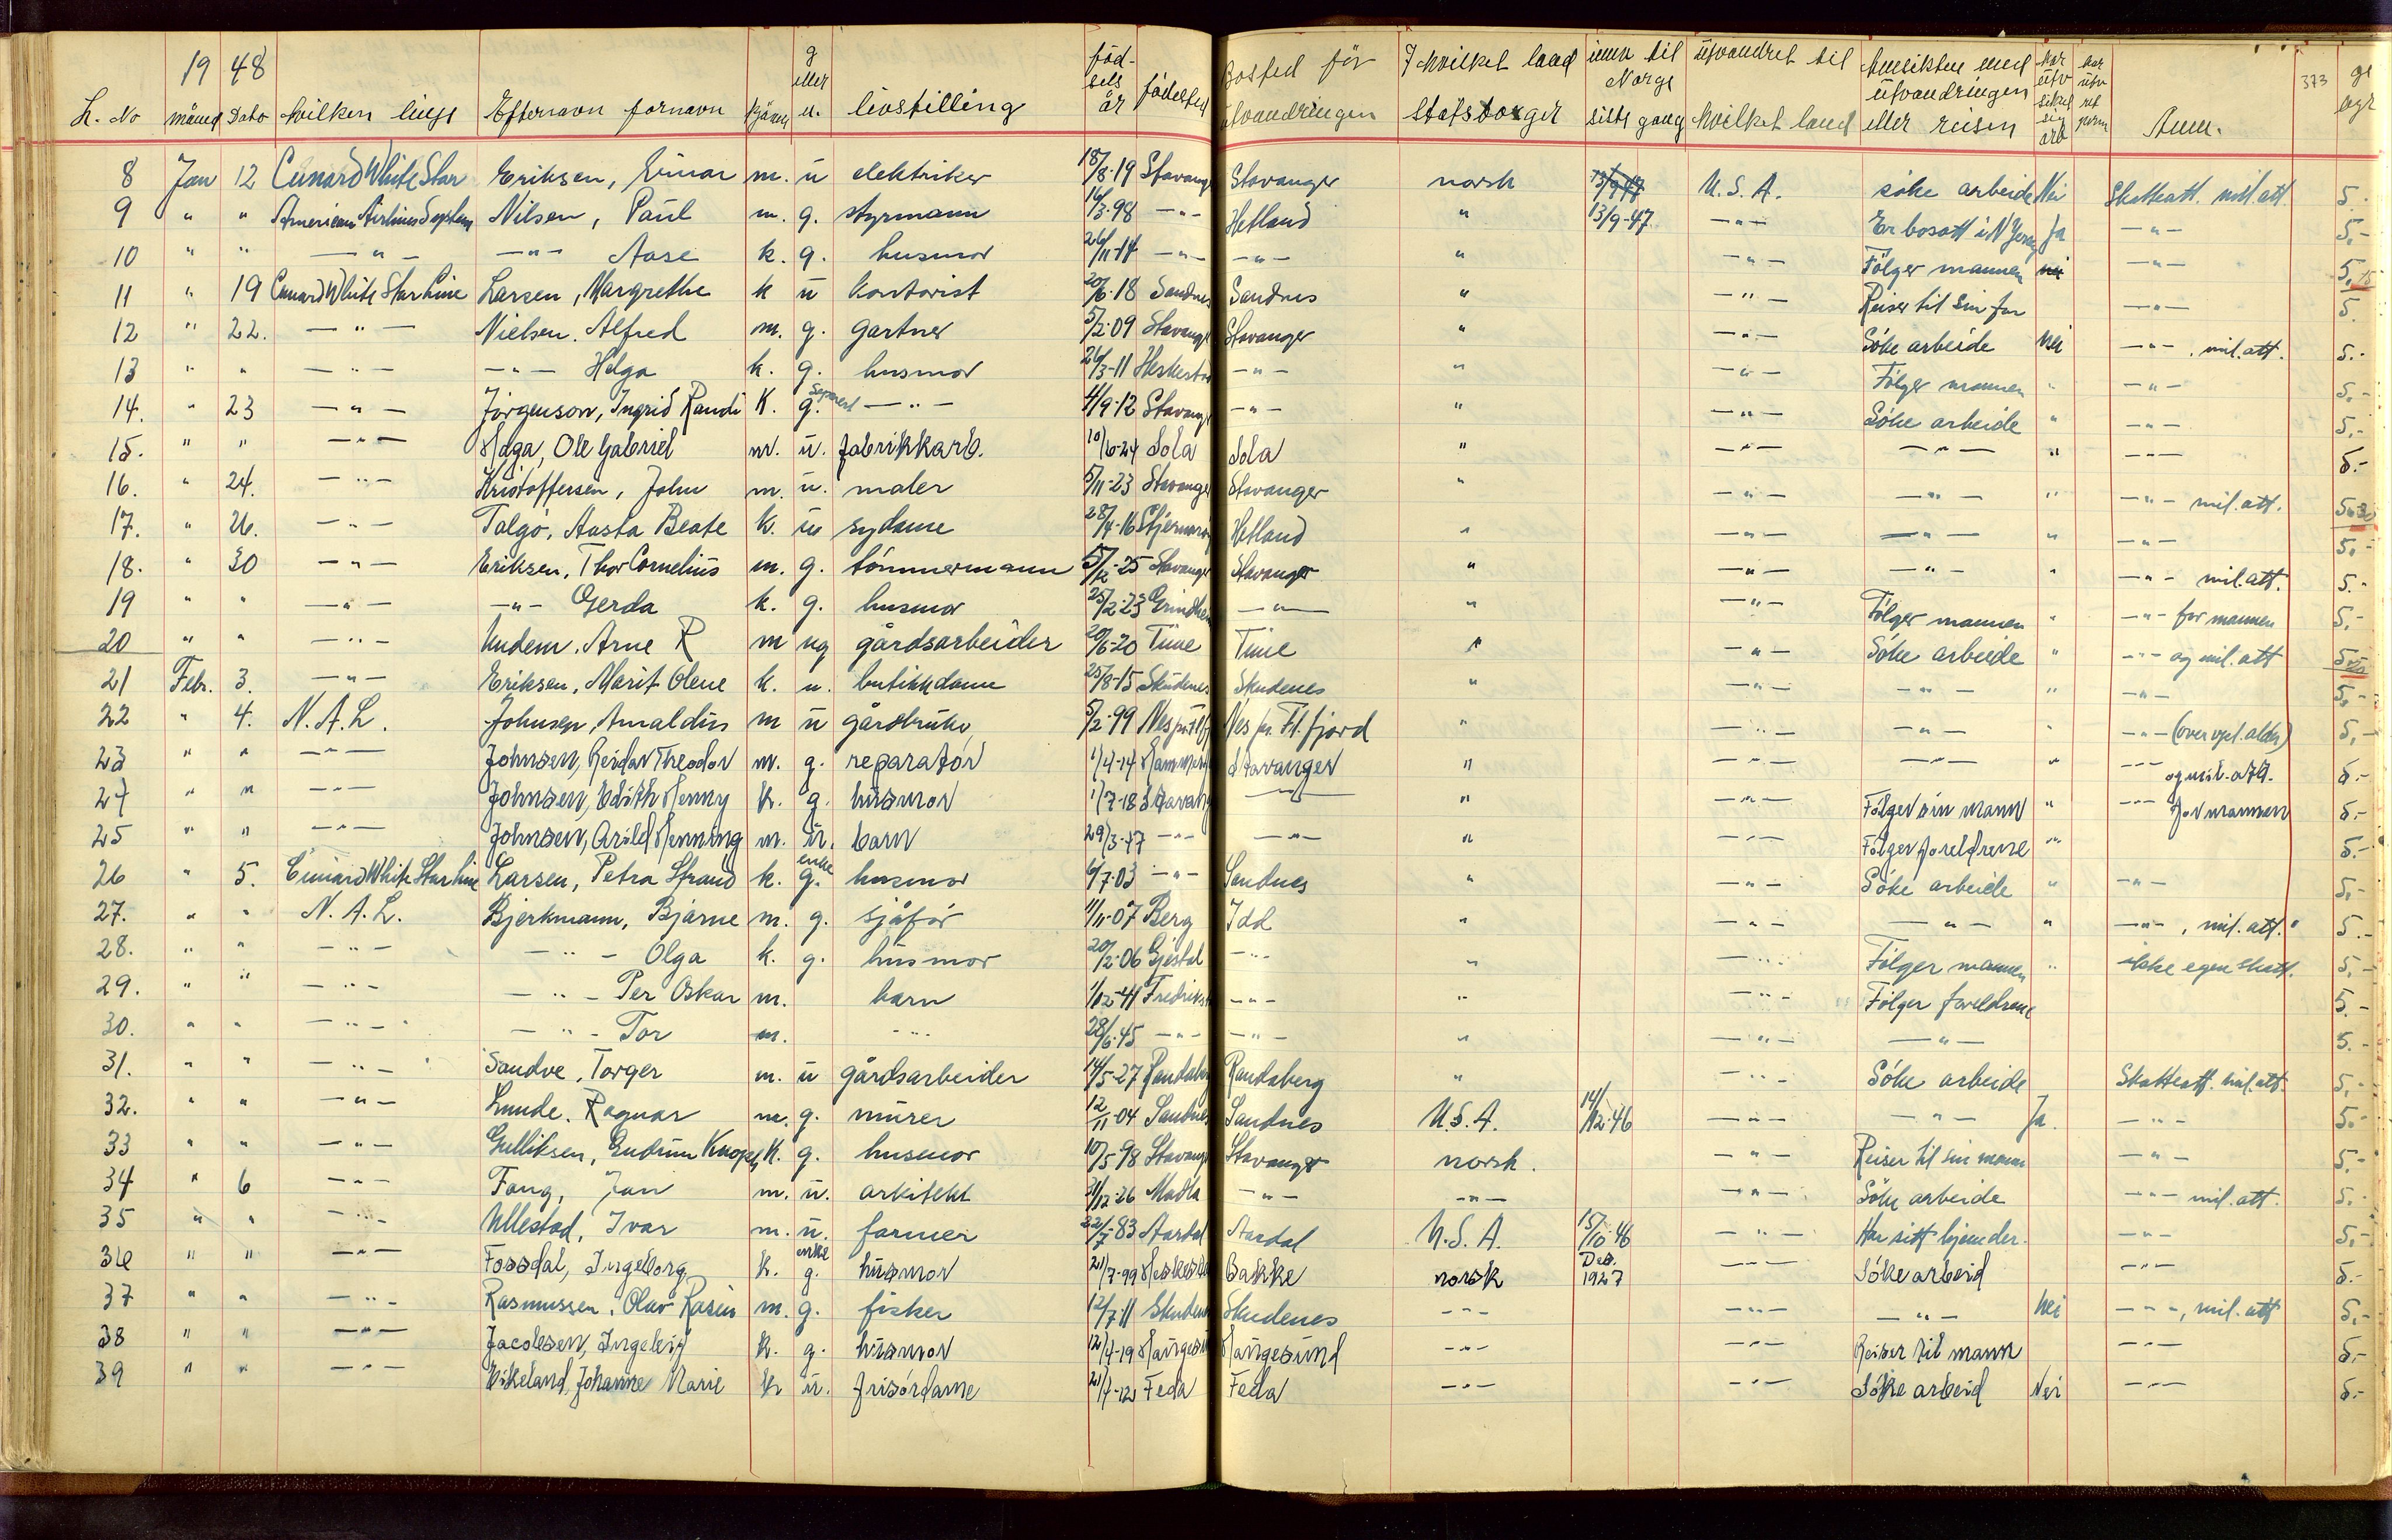 19 48
L. No måned Dato hvilken linje Efternavn fornavn kjönn g eller u. livstilling födselsår födested Bosted för utvandringen I hvilket land statsborger innv til Norge siste gang utvandret til hvilket land hensikten med utvandringen eller reisen har utv sikret sig arb har utv ret perm Anm. 373 ge
8 Jan 12 Cunard White Star Eriksen, Einar m. u elektriker 18/8-19 Stavanger Stavanger norsk 13/9-47 U.S.A. söke arbeide Nei Skatteatt. mil.att. 5.
9 " " American Airlines System Nilsen, Paul m. g. styrmann 16/3-98 -"- Hetland " 13/9-47 -"- Er bosatt i N Ja -"- 5,-
10 " " -"- -"- Aase k. g. husmor 26/11-14 -"- -"- " -"- Fölger mannen nei -"- 5,
11 " 19 Cunard White Star Line Larsen, Margrethe k u kontorist 20/6-18 Sandnes Sandnes " -"- Reiser til sin far -"- 5.
12 " 22. -"- Nielsen. Alfred m. g. gartner 5/2-09 Stavanger Stavanger " -"- Söke arbeide nei -"-, mil.att. 5.-
13 " " -"- -"- Helga k. g. husmor 26/3-11 Heskestad -"- " -"- Fölger mannen " -"- 5.-
14. " 23 -"- Jörgenson, Ingrid Randi K. g. separert -"- 4/9-12 Stavanger -"- " -"- Söke arbeide " -"- 5,-
15. " " -"- Haga, Ole Gabriel m. u. fabrikkarb. 10/6-24 Sola Sola " -"- -"- " -"- 5.-
16. " 24. -"- Kristoffersen, John m. u. maler 5/11-23 Stavanger Stavanger " -"- -"- " -"- mil.att. 5.
17. " 26. -"- Talgö, Aasta Beate k. u sydame 28/4-16 Sjernarøy Hetland " -"- -"- " -"- 5,-
18. " 30 -"- Eriksen, Thor Cornelius m. g. tömmermann 5/12-25 Stavanger Stavanger " -"- -"- " -"- mil.att. 5.-
19 " " -"- -"- Gerda k. g. husmor 25/2-23 Grindheim -"- " -"- Fölger mannen " -"- for mannen 5,-
20 " " -"- Undem. Arne R m ug gårdsarbeider 20/6-20 Time Time " -"- Söke arbeide " -"- og mil.att 5
21 Febr. 3. -"- Eriksen, Marit Olene k. u. butikkdame 25/8-15 Skudenes Skudenes " -"- -"- " -"- 5,-
22 " 4. N.A.L. Johnsen, Arnaldus m u gårdbruker 5/2-99 Nes pr. Fl.fj Nes pr. Fl.fjord " -"- -"- " -"- (over vpl. alder) 5,-
23 " " -"- Johnsen, Reidar Theodor m. g. reparatör 1/4-14 Stavanger " -"- -"- " -"- og mil.att. 5.-
24 " " -"- Johnsen, Edith Henny k. g. husmor 1/7-18 Stavanger -"- " -"- Fölger sin mann " -"- for mannen 5.-
25 " " -"- Johnsen, Arild Henning m. u. barn 29/3-47 -"- -"- " -"- Fölger foreldrene " 5.-
26 " 5. Cunard White Star Line Larsen, Petra Strand k. g. enke husmor 6/7-03 -"- Sandnes " -"- Söke arbeide " -"- 5,-
27. " " N.A.L. Bjerkmann, Bjarne m. g. sjåför 11/11-07 Berg Idd " -"- -"- " -"-, mil.att. 5.-
28. " " -"- -"- Olga k. g. husmor 20/2-06 Gjestal -"- " -"- Fölger mannen " ikke egen skatt. 5,-
29. " " -"- -"- Per Oskar m. barn 1/12-41 Fredrikst -"- " -"- Fölger foreldrene 5.-
30. " " -"- -"- Tor m. -"- 28/6-45 -"- -"- " -"- -"- 5.-
31. " " -"- Sandve, Torger m. u gårdsarbeider 14/5-27 Randaberg Randaberg " -"- Söke arbeide Skatteatt. mil.att. 5,-
32. " " -"- Lunde. Ragnar m. g. murer 12/11-04 Sandnes Sandnes U.S.A. 14/12-46 -"- -"- Ja. -"- 5.-
33 " " -"- Gulliksen, Gudrun Knoph k. g. husmor 10/5-98 Stavanger Stavanger norsk. -"- Reiser til sin mann -"- 5,-
34 " 6 -"- Fang, Jan m. u. arkitekt 31/12-26 Madla -"- -"- -"- Söke arbeide -"- mil.att. 5.-
35 " " -"- Ullestad, Ivar m. u. farmer 22/7-83 Aardal Aardal U.S.A. 15/10-46 -"- Har sitt hjem der. -"- 5,-
36 " " -"- Fossdal, Ingeborg k. g. enke husmor 21/7-99 Heskestad Bakke norsk Des. 1927 -"- Söke arbeid -"- 5.-
37 " " -"- Rasmussen, Olav Rasin m. g. fisker 12/7-11 Skudenes Skudenes -"- -"- -"- nei -"-, mil.att 5,-
38 " " -"- Jacobsen, Ingeleif k. g. husmor 12/4-19 Haugesund Haugesund -"- -"- Reiser til mann -"- 5.-
39 " " -"- Eikeland, Johanne Marie k u. frisördame 21/4-12 Feda Feda -"- -"- Söke arbeid Nei -"- 5.-